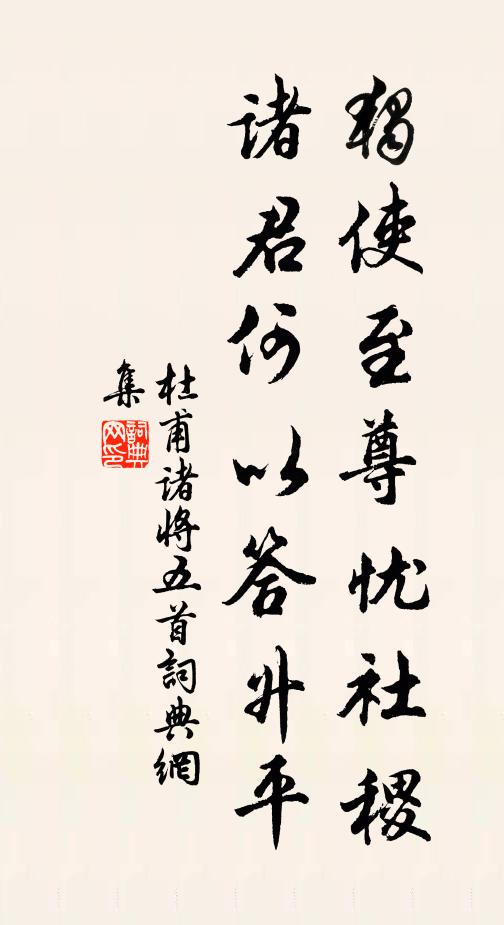 独使至尊忧社稷
諸君何以答升平
杜甫诸将五首詞典網
集
詞典
网印